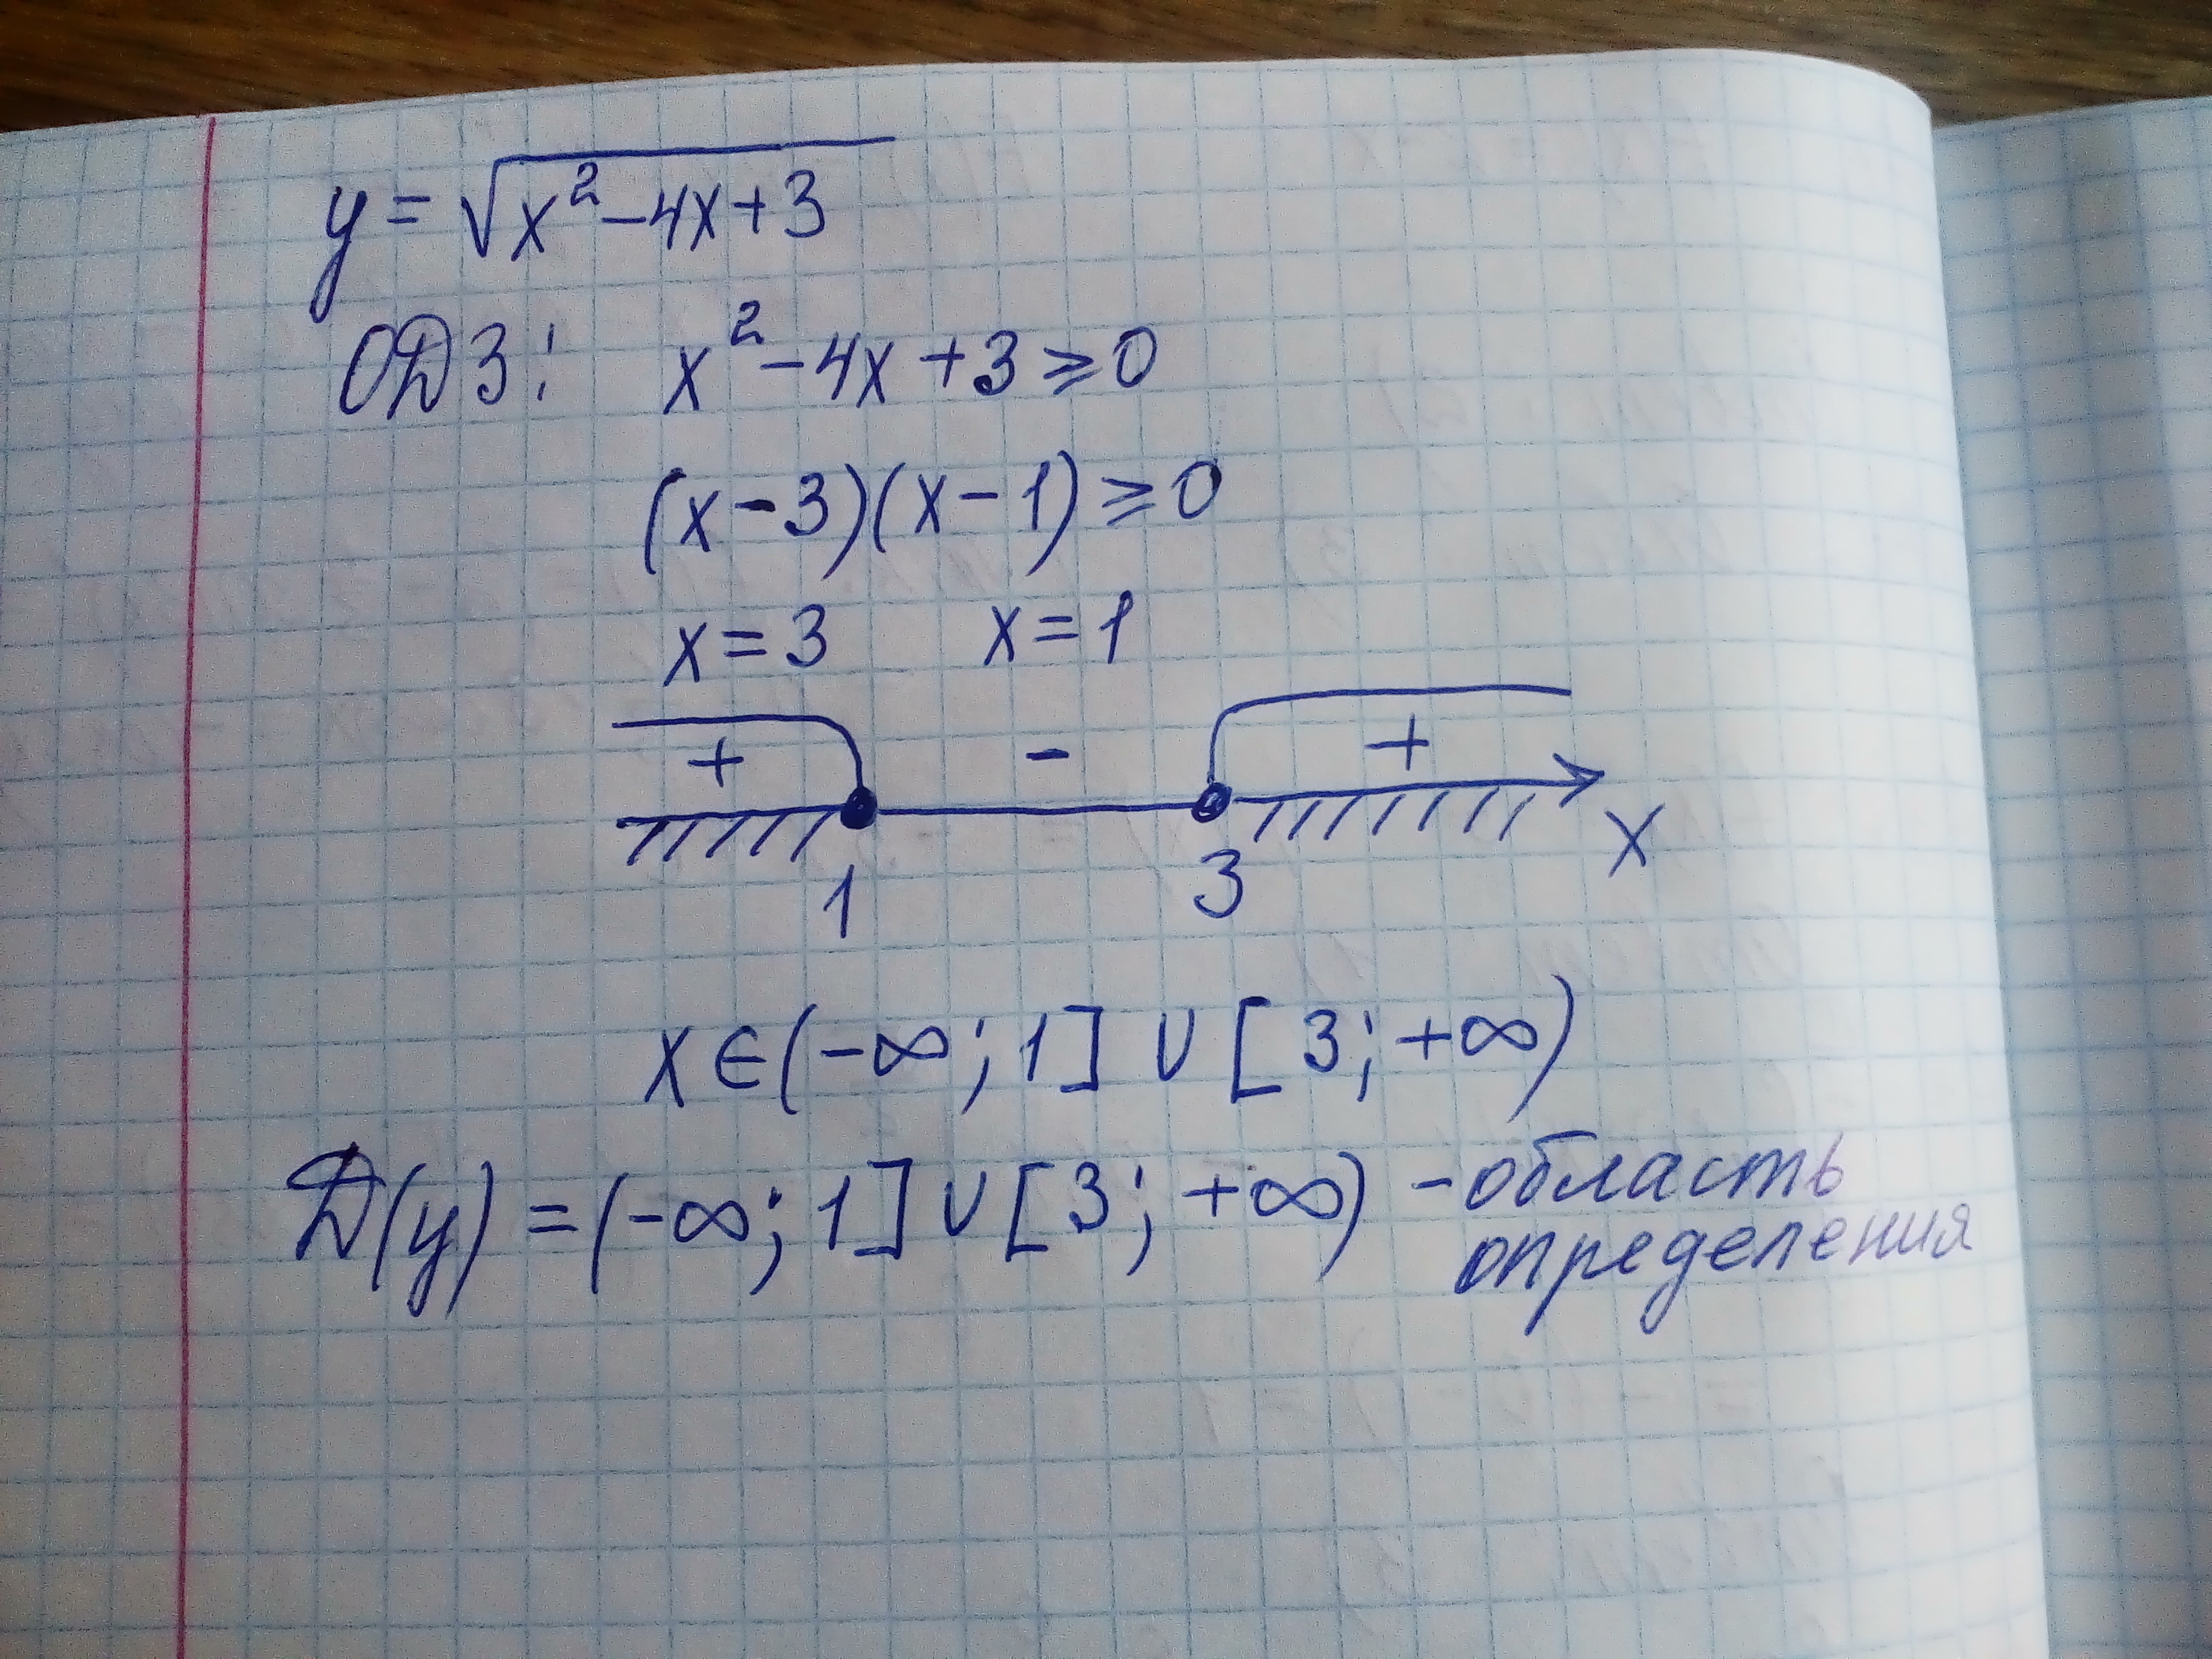 y = √x²-4x+3
ОДЗ: x²-4x+3 ⩾ 0
(x-3)(x-1) ⩾ 0
x=3 x=1
+ - +
1 3 x
x∈(-∞; 1] ∪ [3; +∞)
D(y) = (-∞; 1] ∪ [3; +∞) - область
определения